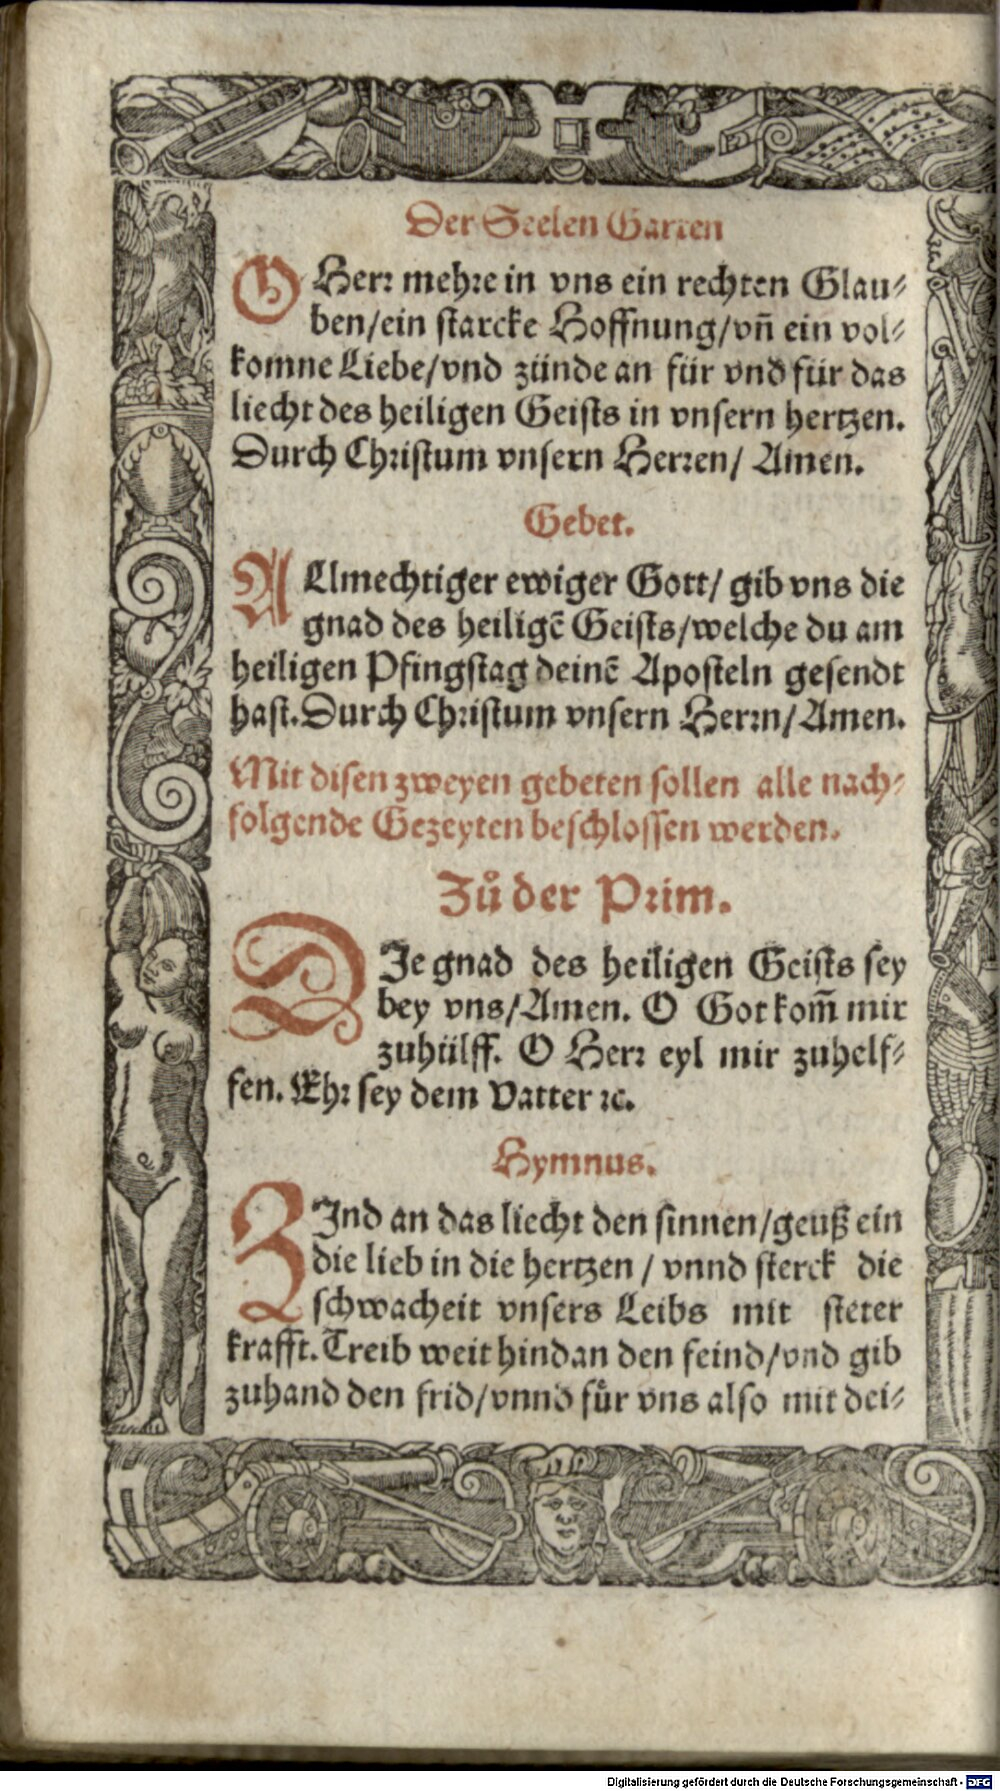 Der Seelen Garten
O Herr mehre in vns ein rechten Glau⸗
ben/ein starcke Hoffnung/vñ ein vol⸗
komne Liebe/vnd zünde an für vnd für das
liecht des heiligen Geists in vnsern hertzen.
Durch Christum vnsern Herren/ Amen.
Gebet.
ALlmechtiger ewiger Gott/ gib vns die
gnad des heiligẽ Geists/welche du am
heiligen Pfingstag deinẽ Aposteln gesendt
hast. Durch Christum vnsern Herrn/Amen.
Mit disen zweyen gebeten sollen alle nach⸗
folgende Gezeyten beschlossen werden.
Zuͦ der Prim.
DIe gnad des heiligen Geists sey
bey vns/Amen. O Got kom̃ mir
zuhülff. O Herr eyl mir zuhelf⸗
fen. Ehr sey dem Vatter ꝛc.
Hymnus.
ZInd an das liecht den sinnen/geuß ein
die lieb in die hertzen / vnnd sterck die
schwacheit vnsers Leibs mit steter
krafft. Treib weit hindan den feind/vnd gib
zuhand den frid/vnnd fuͤr vns also mit dei⸗
Digitalisierung gefördert durch die Deutsche Forschungsgemeinschaft - DFG